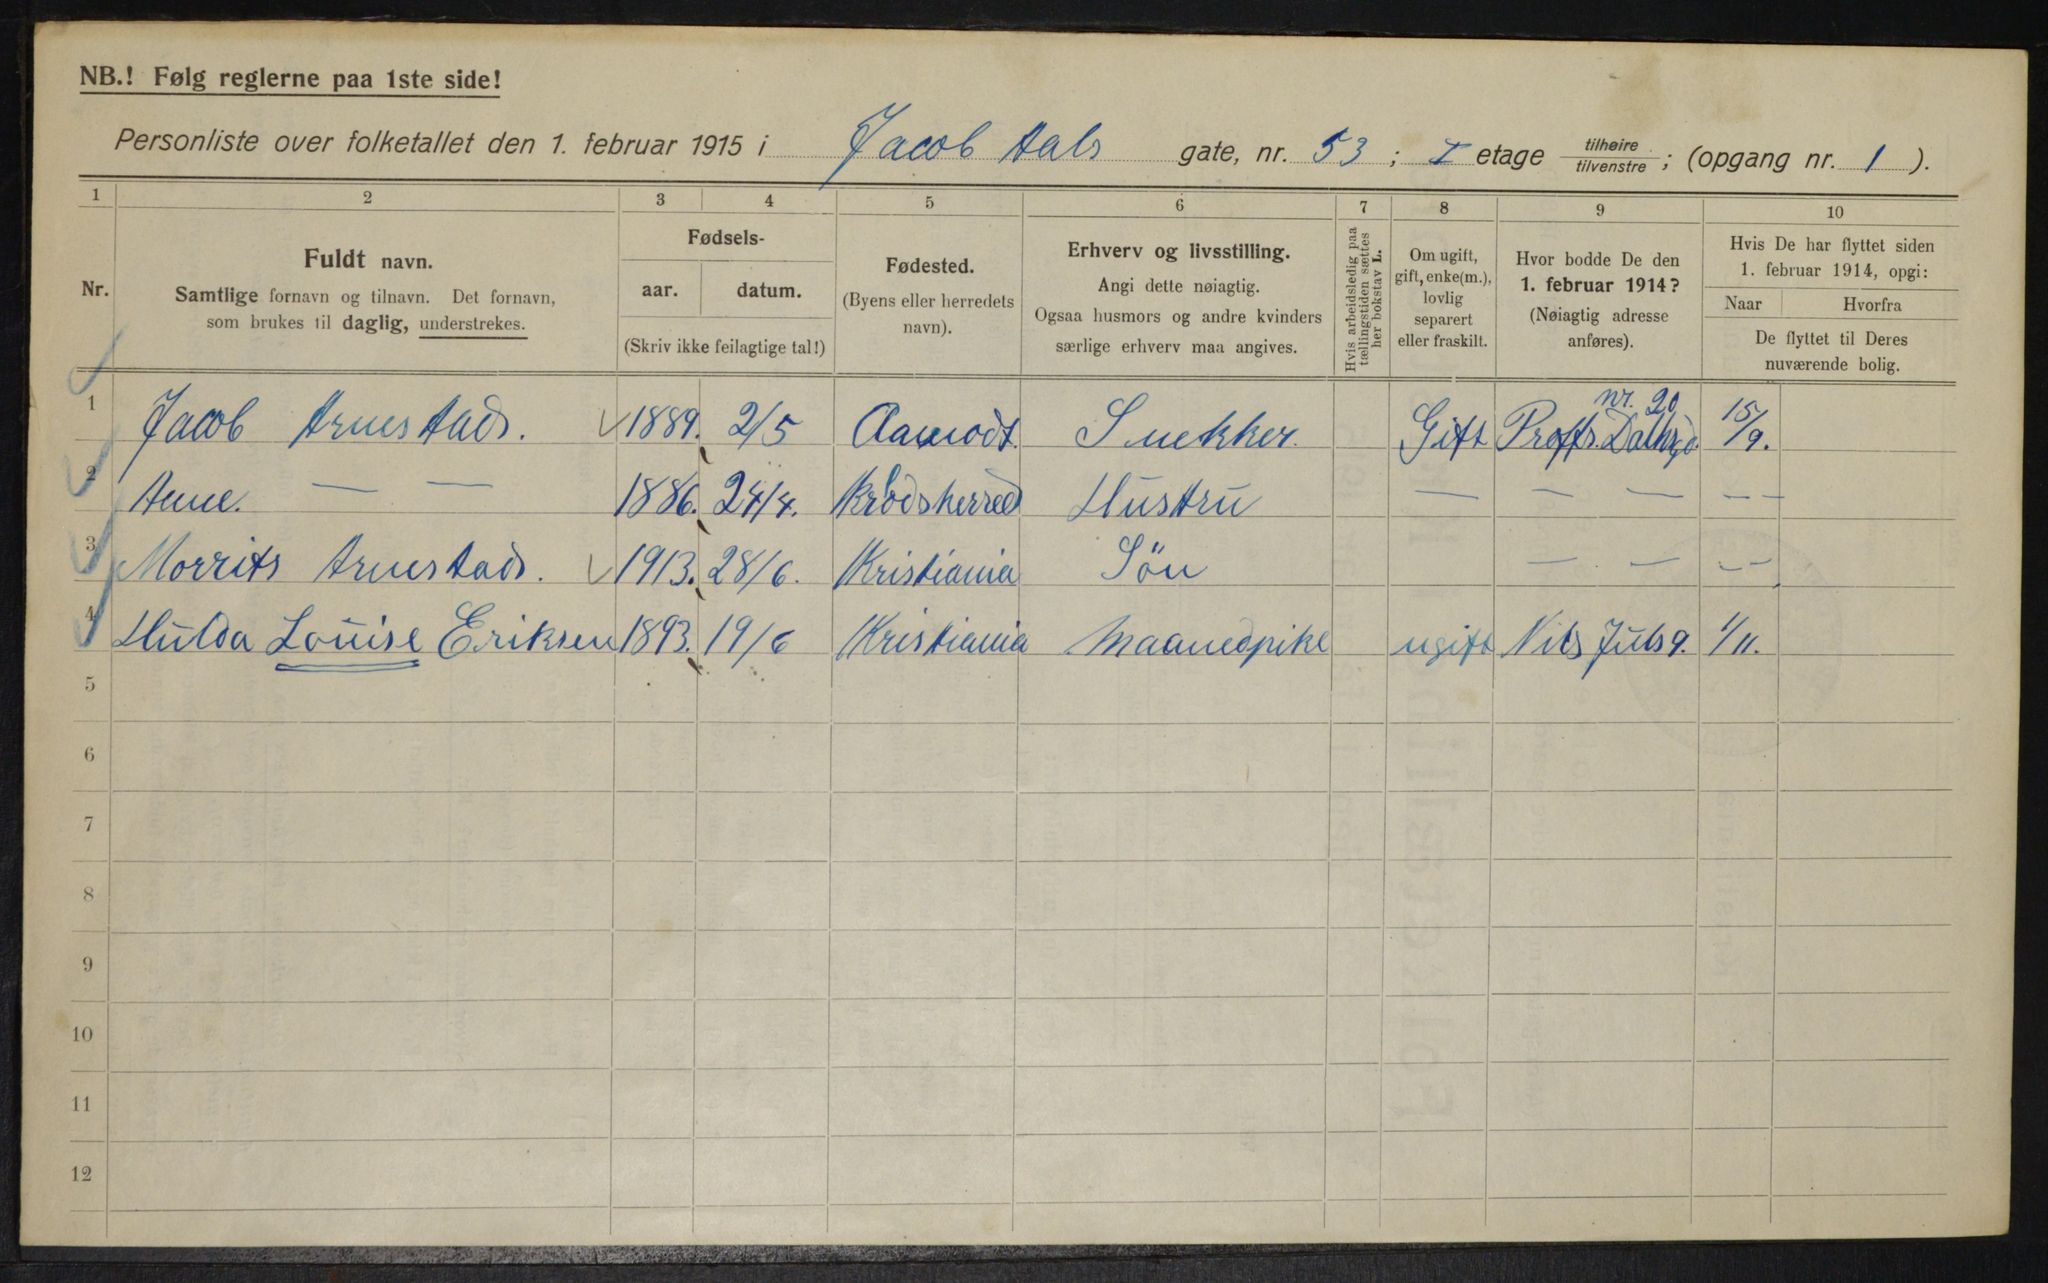 NB.! Følg reglerne paa 1ste side!
Personliste over folketallet den 1. februar 1915 i Jacob Aals gate, nr. 53; I etage tilhøire / tilvenstre; (opgang nr. 1).
1 2 3 4 5 6 7 8 9 10
Nr.
Fuldt navn.
Samtlige fornavn og tilnavn. Det fornavn,
som brukes til daglig, understrekes.
Fødsels-
aar. datum.
(Skriv ikke feilagtige tal!)
Fødested.
(Byens eller herredets
navn).
Erhverv og livsstilling.
Angi dette nøiagtig.
Ogsaa husmors og andre kvinders
særlige erhverv maa angives.
Hvis arbeidsledig paa
tællingstiden sættes
her bokstav L.
Om ugift,
gift, enke(m.),
lovlig
separert
eller fraskilt.
Hvor bodde De den
1. februar 1914?
(Nøiagtig adresse
anføres).
Hvis De har flyttet siden
1. februar 1914, opgi:
Naar Hvorfra
De flyttet til Deres
nuværende bolig.
1 Jacob Arnestads. 1889. 2/5 Aamodt. Snekker. Gift Proffs. Dalhsg. nr. 20 15/9.
2 Anne. — — 1886. 24/4. Krödsherred Hustru — — — — —
3 Morrits Arnestads. 1913. 28/6. Kristiania Sön — — — —
4 Hulda Louise Eriksen 1893. 19/6 Kristiania Maanedpike ugift Nils Juls 9. 1/11.
5
6
7
8
9
10
11
12